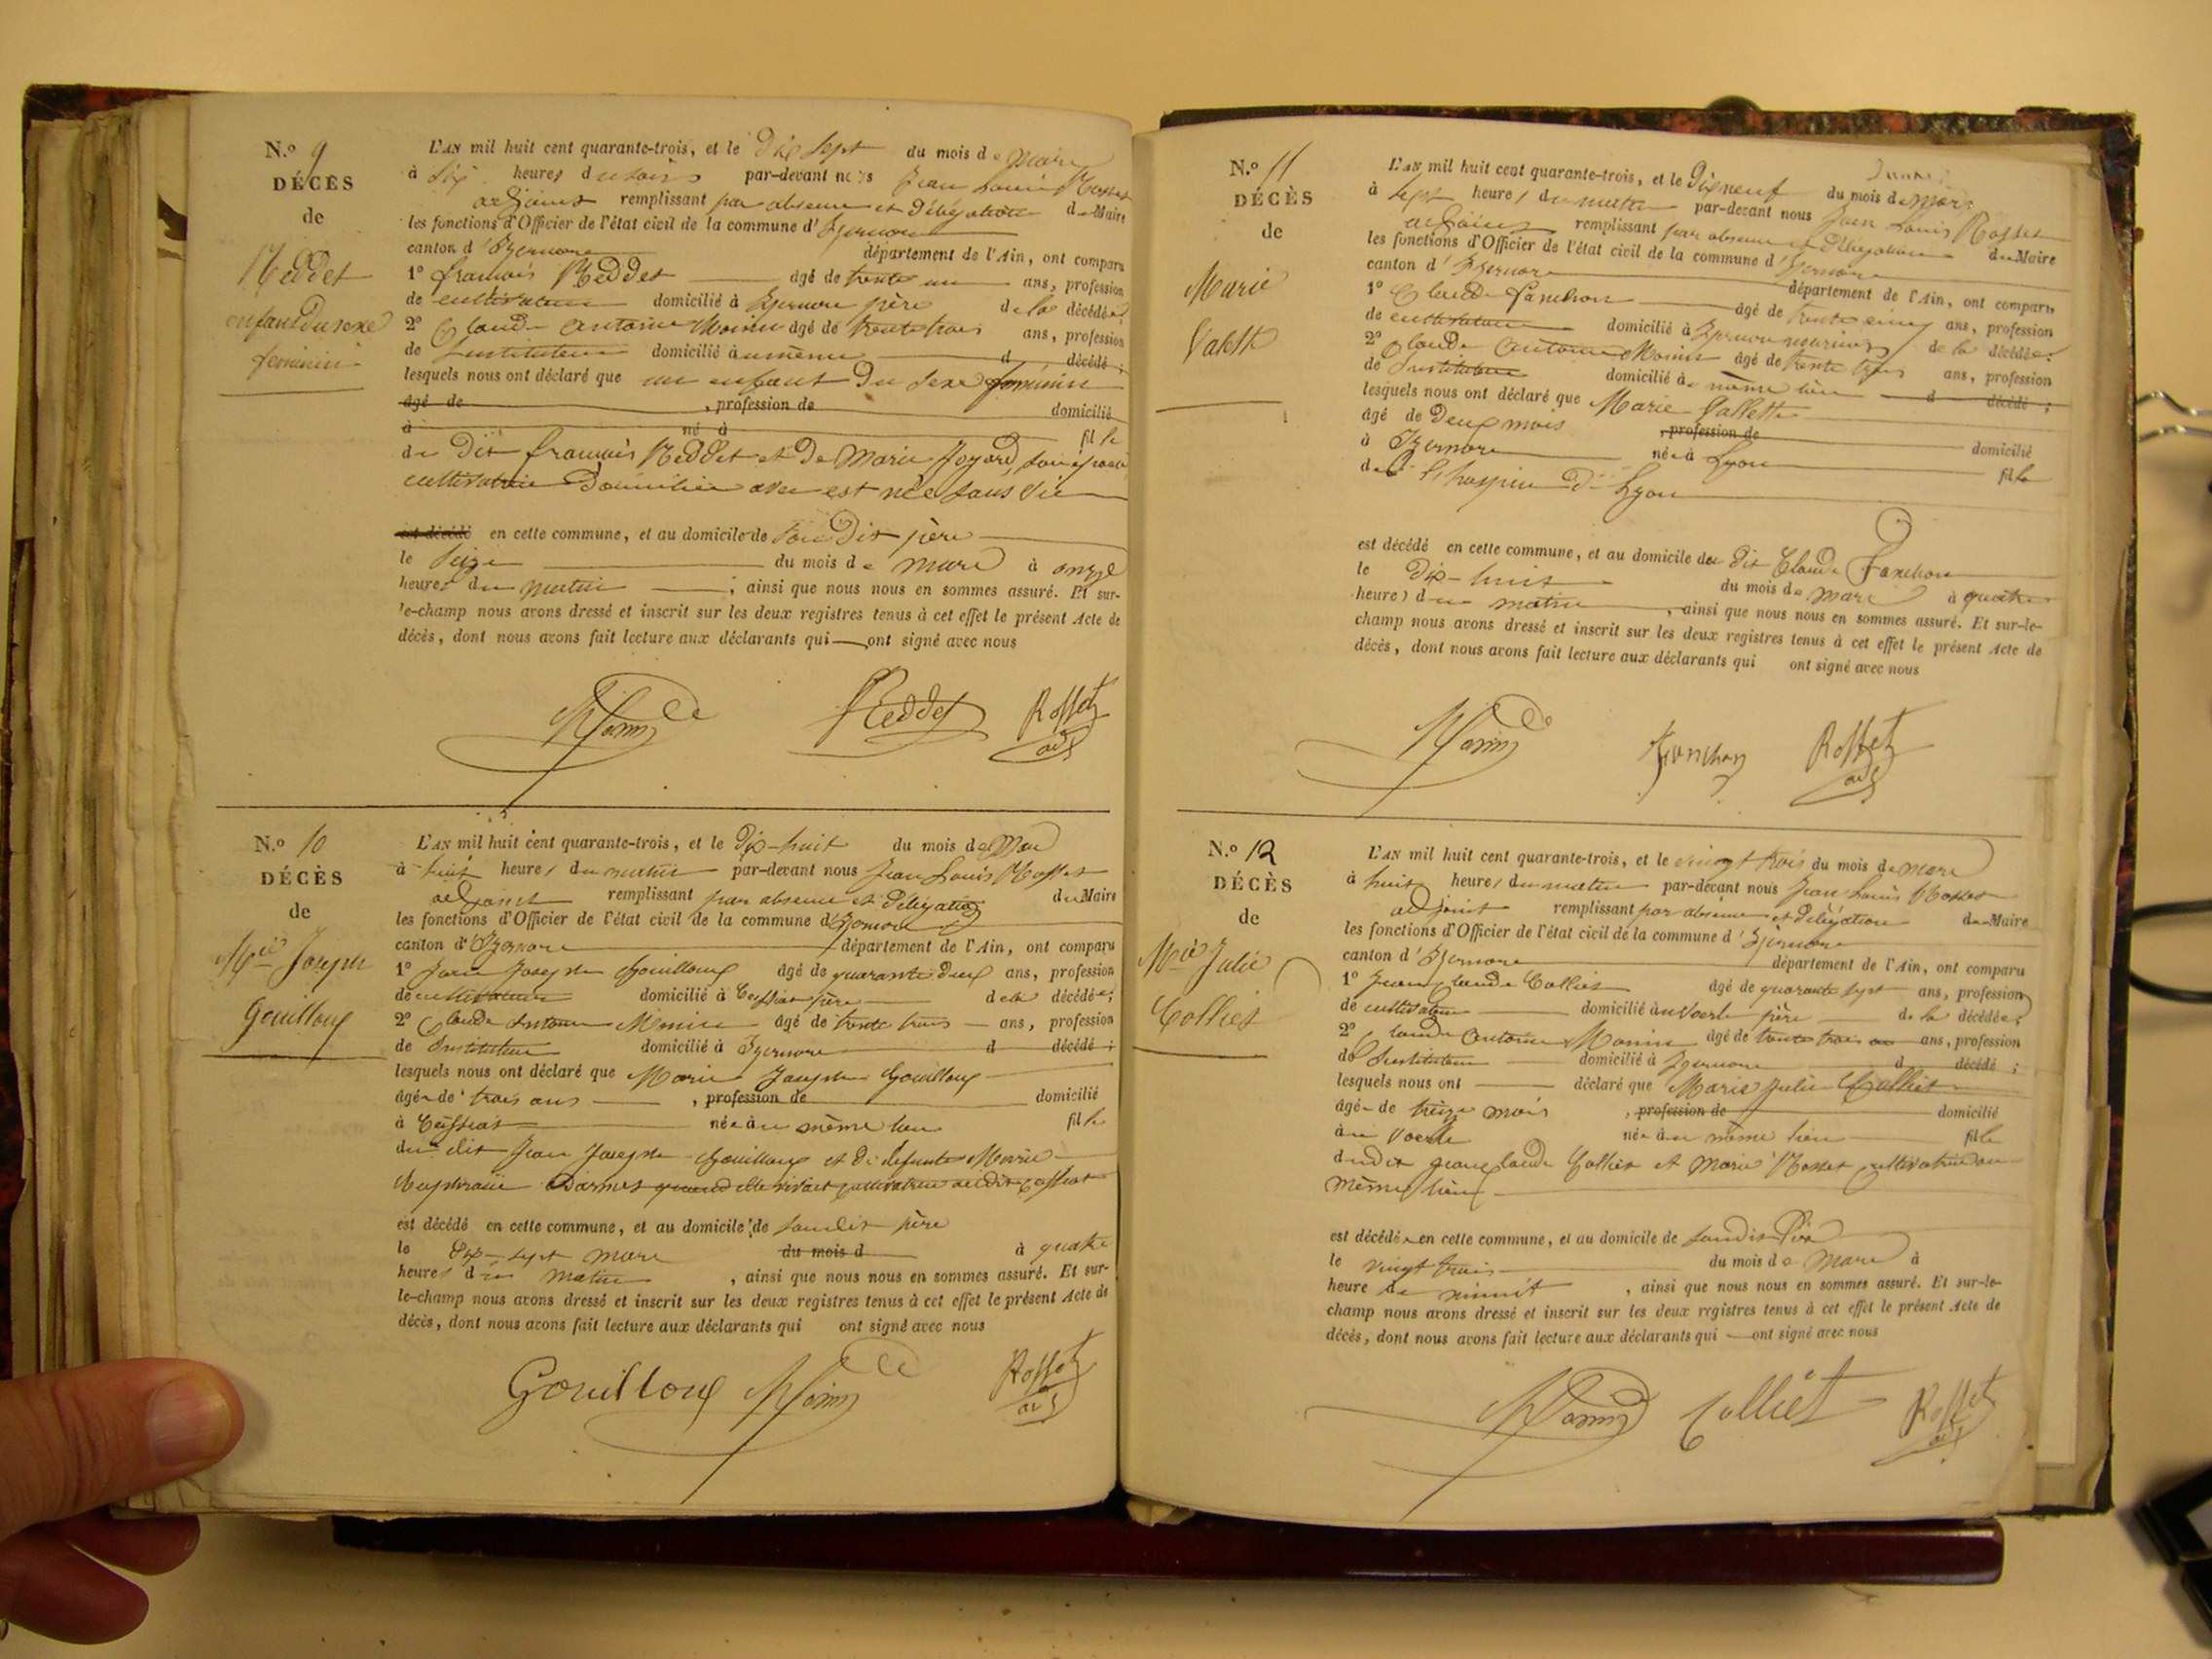 N.º 9
DÉCÈS
de
Reddet
enfant du sexe
feminin
L'AN mil huit cent quarante-trois, et le dix sept du mois de mars
à six heures du soir par-devant nous Jean Louis Rosset
adjoint remplissant par absence et délégation du Maire
les fonctions d'Officier de l'état civil de la commune d'Izernore
canton d'Izernore département de l'Ain, ont comparu
1º françois Reddet âgé de trente un ans, profession
de cultivateur domicilié à Izernore père de la décédée;
2º Claude Antoine Monin âgé de trente trois ans, profession
de Instituteur domicilié au même d décédé;
lesquels nous ont déclaré que un enfant du sexe féminin
âgé de , profession de domicilié
à né à fille
du dit françois Reddet et de Marie Joyard, son épouse
cultivatrice Domiciliée avec est née sans vie
est décédé en cette commune, et au domicile de son dit père
le seize du mois de mars à onze
heures du matin ; ainsi que nous nous en sommes assuré. Et sur-
le-champ nous avons dressé et inscrit sur les deux registres tenus à cet effet le présent Acte de
décès, dont nous avons fait lecture aux déclarants qui ont signé avec nous
Monin Reddet Rosset
adj
N.º 10
DÉCÈS
de
Mie Joseph
Gouilloux
L'AN mil huit cent quarante-trois, et le dix-huit du mois de Mars
à huit heures du matin par-devant nous Jean Louis Rosset
adjoint remplissant par absence et délégation du Maire
les fonctions d'Officier de l'état civil de la commune d'Izernore
canton d'Izernore département de l'Ain, ont comparu
1º Jean Joseph Gouilloux âgé de quarante deux ans, profession
de cultivateur domicilié à Ceissiat père de la décédée;
2º Claude Antoine Monin âgé de trente trois ans, profession
de Instituteur domicilié à Izernore d décédé;
lesquels nous ont déclaré que Marie Joseph Gouilloux
âgée de trois ans , profession de domicilié
à Ceissiat née au même lieu fille
du dit Jean Joseph Gouilloux et de defunte Marie
Darmet quand elle vivait cultivatrice audit Ceissiat
est décédé en cette commune, et au domicile de son dit père
le dix-sept mars du mois d à quatre
heures du matin , ainsi que nous nous en sommes assuré. Et sur-
le-champ nous avons dressé et inscrit sur les deux registres tenus à cet effet le présent Acte de
décès, dont nous avons fait lecture aux déclarants qui ont signé avec nous
Gouilloux Monin Rosset
adj
N.º 11
DÉCÈS
de
Marie
Valette
L'AN mil huit cent quarante-trois, et le dix neuf du mois de mars
à sept heures du matin par-devant nous Jean Louis Rosset
adjoint remplissant par absence et délégation du Maire
les fonctions d'Officier de l'état civil de la commune d'Izernore
canton d'Izernore département de l'Ain, ont comparu
1º Claude Fanchon âgé de trente cinq ans, profession
de cultivateur domicilié à Izernore nourricier de la décédée;
2º Claude Antoine Monin âgé de trente trois ans, profession
de Instituteur domicilié à même lieu d décédé;
lesquels nous ont déclaré que Marie Vallette
âgé de deux mois , profession de
à Izernore née à Lyon domicilié
de l'hospice de Lyon fille
est décédé en cette commune, et au domicile du dit Claude Fanchon
le dix-huit du mois de mars à quatre
heures du matin , ainsi que nous nous en sommes assuré. Et sur-le-
champ nous avons dressé et inscrit sur les deux registres tenus à cet effet le présent Acte de
décès, dont nous avons fait lecture aux déclarants qui ont signé avec nous
Monin fanchon Rosset
adj
N.º 12
DÉCÈS
de
Mie Julie
Colliet
L'AN mil huit cent quarante-trois, et le vingt trois du mois de mars
à huit heures du matin par-devant nous Jean Louis Rosset
adjoint remplissant par absence et délégation du Maire
les fonctions d'Officier de l'état civil de la commune d'Izernore
canton d'Izernore département de l'Ain, ont comparu
1º Jean Claude Colliet âgé de quarante sept ans, profession
de cultivateur domicilié au Voerle père de la décédée;
2º Claude Antoine Monin âgé de trente trois ans, profession
de Instituteur domicilié à Izernore d décédé;
lesquels nous ont déclaré que Marie Julie Colliet
âgée de treize mois , profession de domicilié
au Voerle née au même lieu fille
dudit Jean Claude Colliet et Marie Rosset cultivatrice au
même lieu
est décédée en cette commune, et au domicile de son dit Père
le vingt trois du mois de mars à
heure de minuit , ainsi que nous nous en sommes assuré. Et sur-le-
champ nous avons dressé et inscrit sur les deux registres tenus à cet effet le présent Acte de
décès, dont nous avons fait lecture aux déclarants qui ont signé avec nous
Monin Colliet Rosset
adj